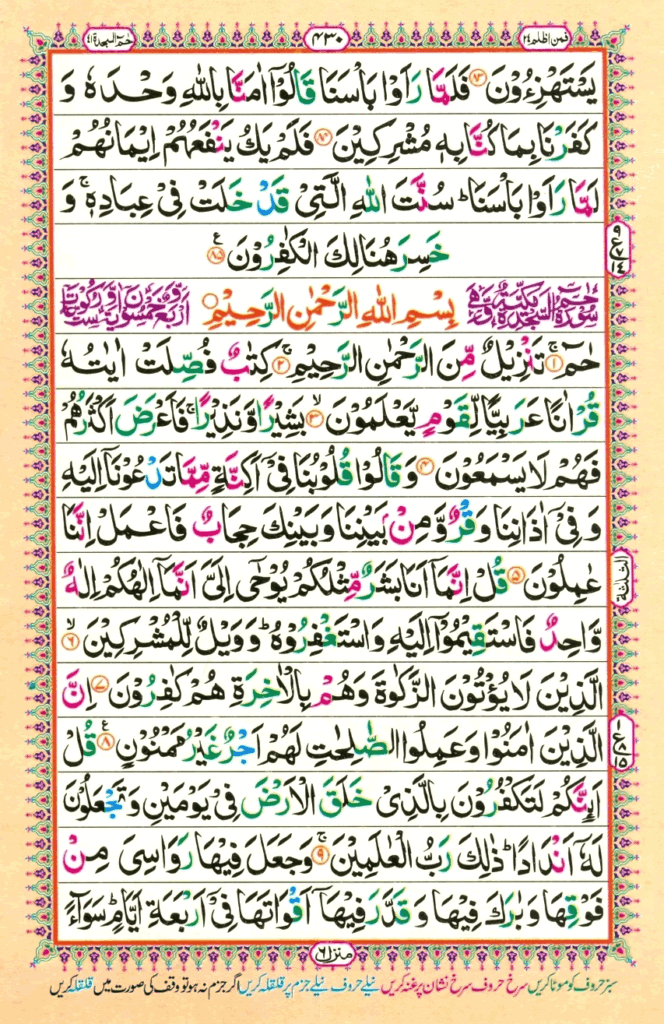 فمن اظلم ٢٤
٤٣٠
حٰمٓ السجدة ٤١
يَسْتَهْزِءُوْنَ ﴿٨٣﴾ فَلَمَّا رَاَوْا بَاْسَنَا قَالُوْٓا اٰمَنَّا بِاللّٰهِ وَحْدَهٗ وَ
كَفَرْنَا بِمَا كُنَّا بِهٖ مُشْرِكِيْنَ ﴿٨٤﴾ فَلَمْ يَكُ يَنْفَعُهُمْ اِيْمَانُهُمْ
لَمَّا رَاَوْا بَاْسَنَا ؕ سُنَّتَ اللّٰهِ الَّتِيْ قَدْ خَلَتْ فِيْ عِبَادِهٖ ۚ وَ
خَسِرَ هُنَالِكَ الْكٰفِرُوْنَ ﴿٨٥﴾
سُوْرَةُ حٰمٓ السَّجْدَةِ مَكِّيَّةٌ وَّهِيَ
بِسْمِ اللّٰهِ الرَّحْمٰنِ الرَّحِيْمِ
اَرْبَعٌ وَّخَمْسُوْنَ اٰيَةً وَّسِتُّ رُكُوْعَاتٍ
حٰمٓ ۚ﴿١﴾ تَنْزِيْلٌ مِّنَ الرَّحْمٰنِ الرَّحِيْمِ ۚ﴿٢﴾ كِتٰبٌ فُصِّلَتْ اٰيٰتُهٗ
قُرْاٰنًا عَرَبِيًّا لِّقَوْمٍ يَّعْلَمُوْنَ ۙ﴿٣﴾ بَشِيْرًا وَّنَذِيْرًا ۚ فَاَعْرَضَ اَكْثَرُهُمْ
فَهُمْ لَا يَسْمَعُوْنَ ﴿٤﴾ وَقَالُوْا قُلُوْبُنَا فِيْٓ اَكِنَّةٍ مِّمَّا تَدْعُوْنَآ اِلَيْهِ
وَفِيْٓ اٰذَانِنَا وَقْرٌ وَّمِنْۢ بَيْنِنَا وَبَيْنِكَ حِجَابٌ فَاعْمَلْ اِنَّنَا
عٰمِلُوْنَ ﴿٥﴾ قُلْ اِنَّمَآ اَنَا بَشَرٌ مِّثْلُكُمْ يُوْحٰٓى اِلَيَّ اَنَّمَآ اِلٰهُكُمْ اِلٰهٌ
وَّاحِدٌ فَاسْتَقِيْمُوْٓا اِلَيْهِ وَاسْتَغْفِرُوْهُ ؕ وَوَيْلٌ لِّلْمُشْرِكِيْنَ ۙ﴿٦﴾
الَّذِيْنَ لَا يُؤْتُوْنَ الزَّكٰوةَ وَهُمْ بِالْاٰخِرَةِ هُمْ كٰفِرُوْنَ ﴿٧﴾ اِنَّ
الَّذِيْنَ اٰمَنُوْا وَعَمِلُوا الصّٰلِحٰتِ لَهُمْ اَجْرٌ غَيْرُ مَمْنُوْنٍ ﴿٨﴾ قُلْ
اَئِنَّكُمْ لَتَكْفُرُوْنَ بِالَّذِيْ خَلَقَ الْاَرْضَ فِيْ يَوْمَيْنِ وَتَجْعَلُوْنَ
لَهٗٓ اَنْدَادًا ؕ ذٰلِكَ رَبُّ الْعٰلَمِيْنَ ۚ﴿٩﴾ وَجَعَلَ فِيْهَا رَوَاسِيَ مِنْ
فَوْقِهَا وَبٰرَكَ فِيْهَا وَقَدَّرَ فِيْهَآ اَقْوَاتَهَا فِيْٓ اَرْبَعَةِ اَيَّامٍ ؕ سَوَآءً
الثلثة
منزل ٦
سبز حروف کو موٹا کریں سرخ حروف سرخ نشان پر غنہ کریں نیلے حروف نیلے جزم پر قلقلہ کریں اگر جزم نہ ہو تو وقف کی صورت میں قلقلہ کریں